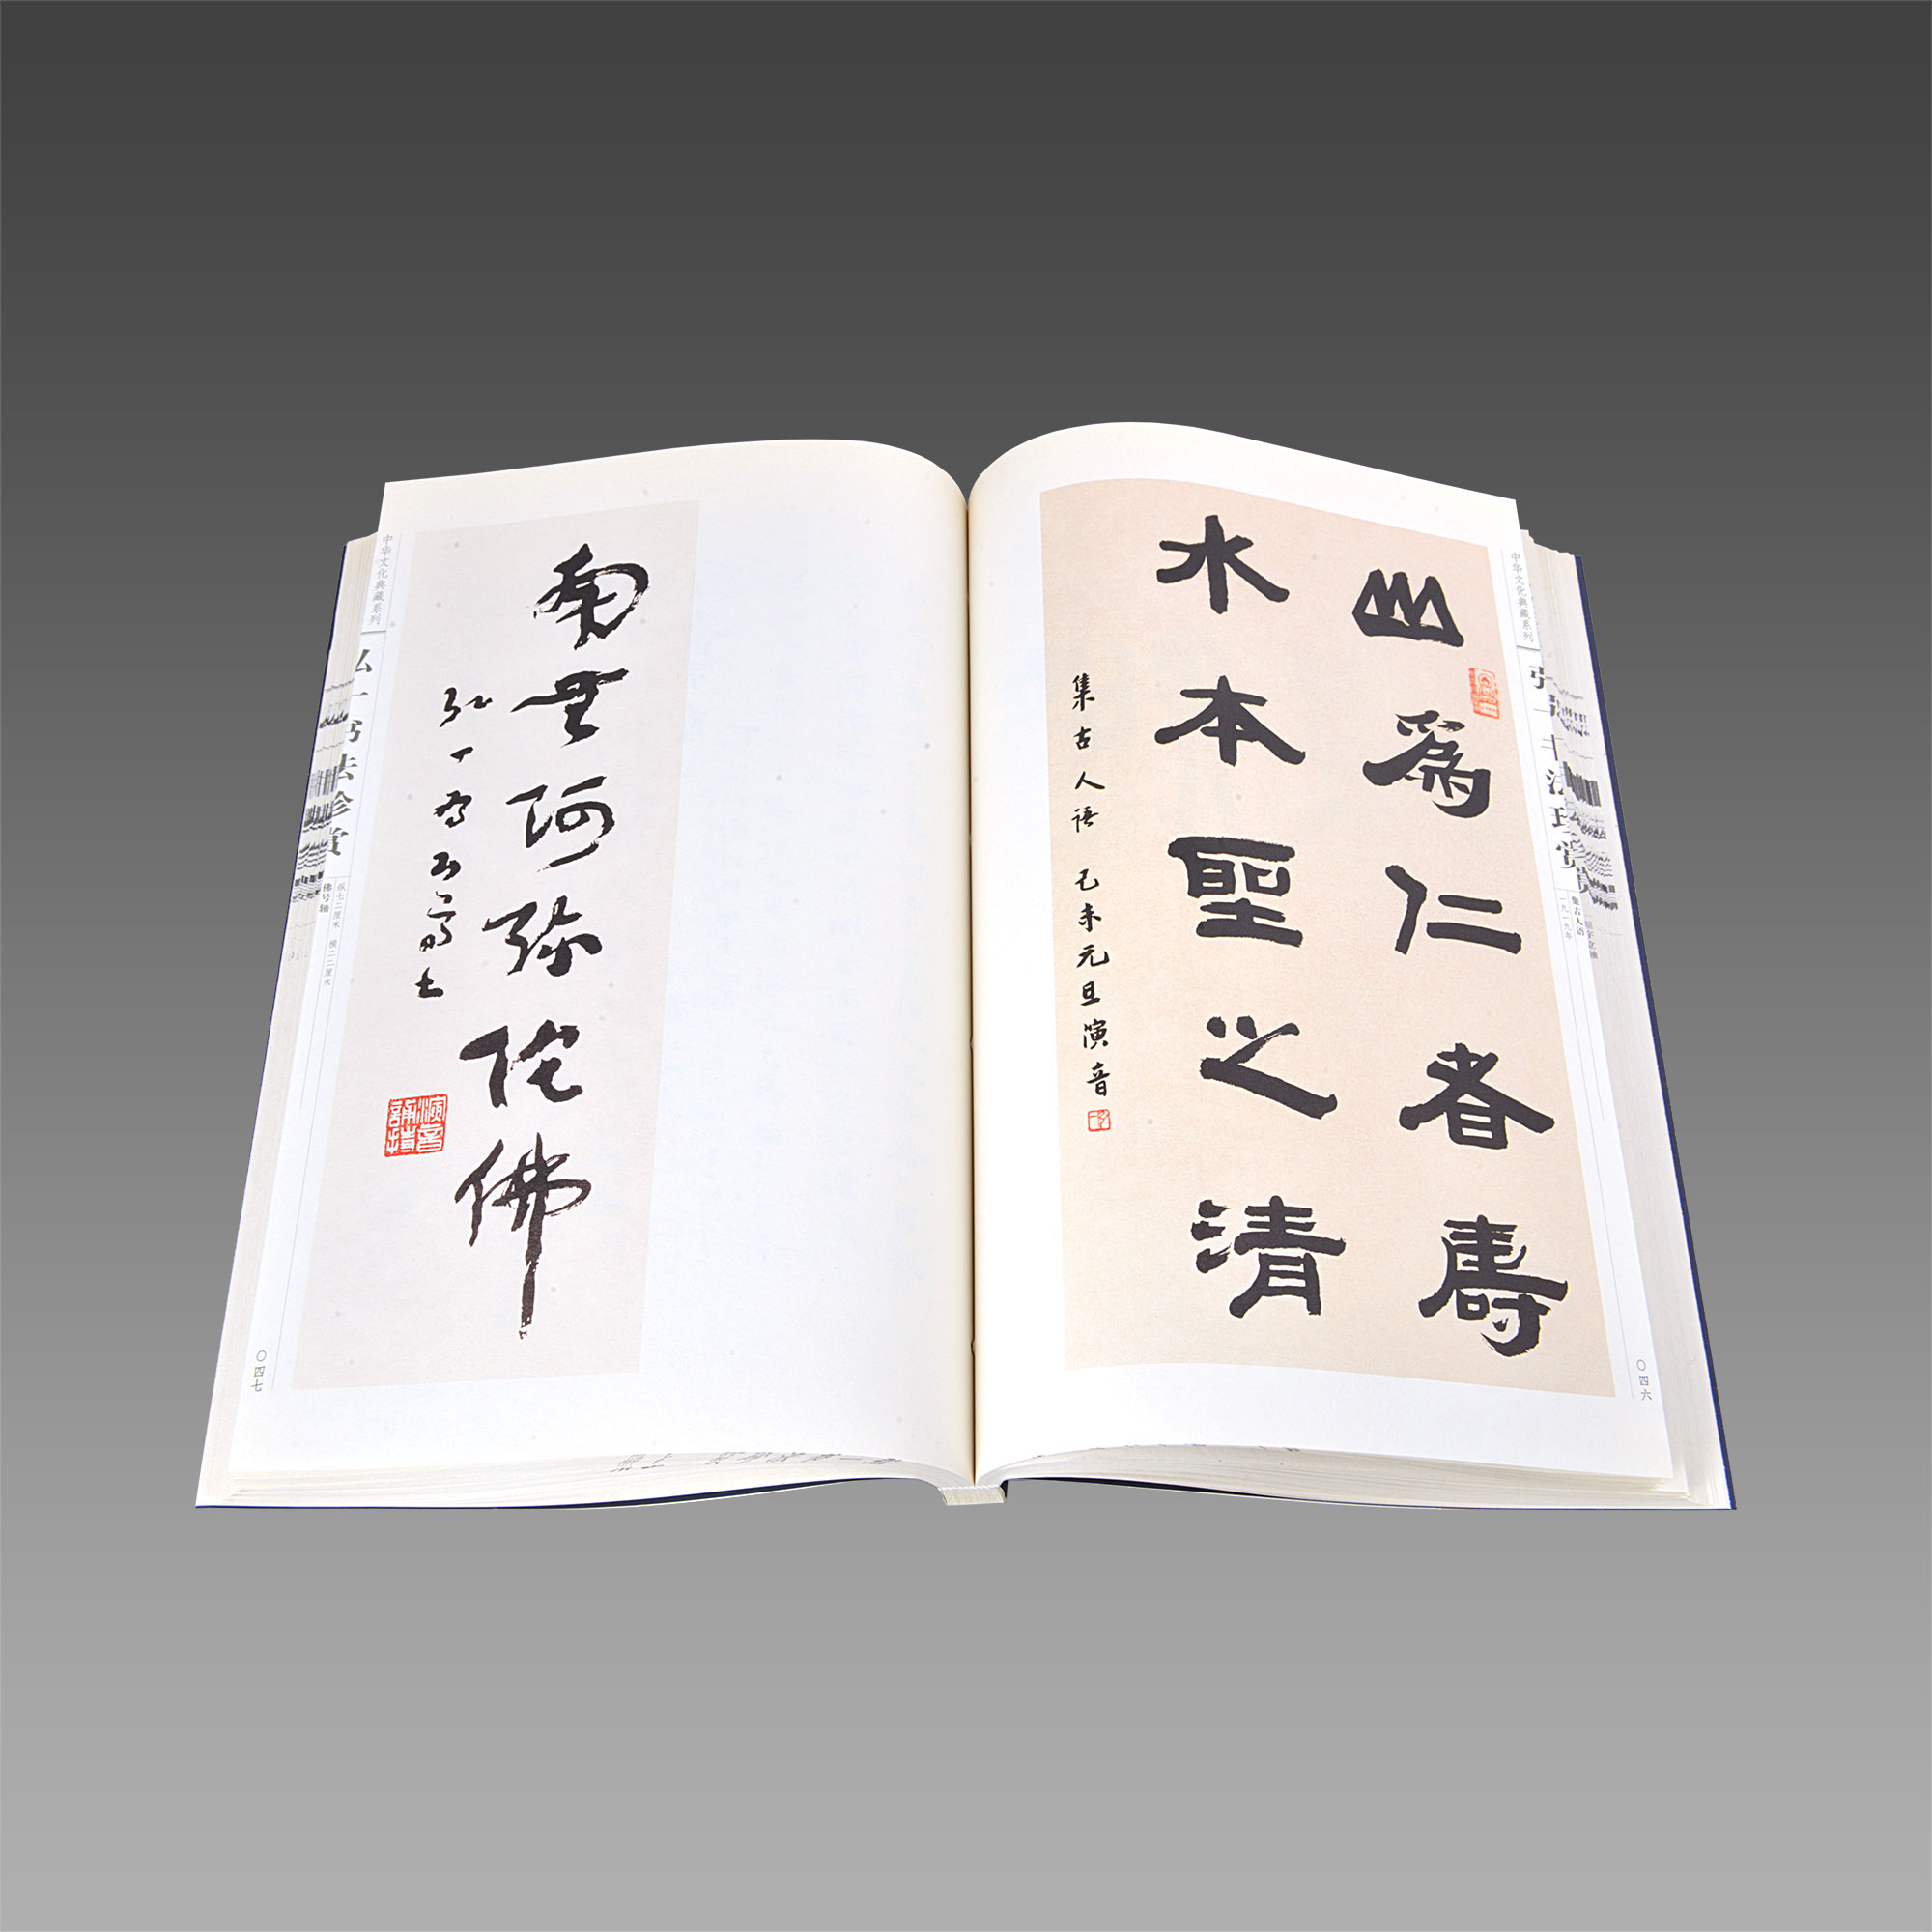 中华文化典藏系列
集古人语
一九一九年
山為仁者壽
水本聖之清
集古人語 己未元旦演音
〇四六
南無阿弥陀佛
演音
中华文化典藏系列
弘一书法珍赏
佛号轴
纵七二厘米 横二二厘米
〇四七